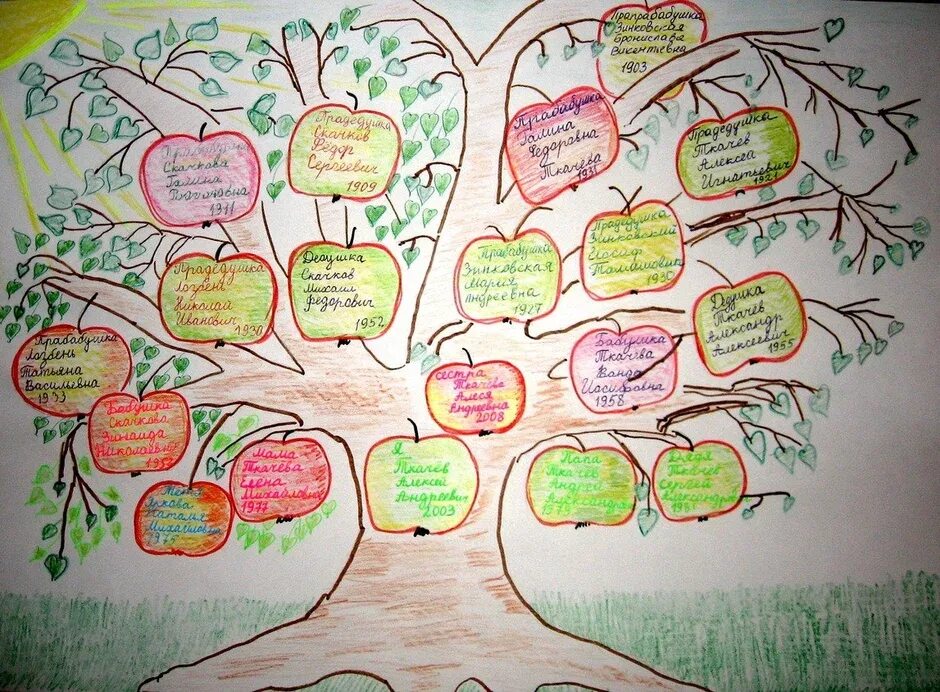 Прапрабабушка
Зинковская
Бронислава
Викентьевна
1903
Скачкова
Галина
1911
Прадедушка
Скачков
Фёдр
Сергеевич
1909
Прабабушка
Галина
Федоровна
Ткачева
1931
Прадедушка
Ткачев
Алексей
Игнатьевич
1921
Прадедушка
Лозбень
Николай
Иванович
1930
Дедушка
Скачков
Михаил
Федорович
1952
Прабабушка
Зинковская
Мария
Андреевна
1927
Прадедушка
Зинковский
Иосиф
1930
Дедушка
Ткачев
Александр
Алексеевич
1955
Прабабушка
Лозбень
Татьяна
Васильевна
1933
Бабушка
Скачкова
Зинаида
Николаевна
сестра
Ткачева
Алеся
Андреевна
2008
Бабушка
Ткачева
Ванда
Иосифовна
1958
Тётя
Наталья
Михайловна
1975
Мама
Ткачева
Елена
Михайловна
1977
Я
Ткачёв
Алексей
Андреевич
2003
Папа
Ткачев
Андрей
Александрович
Дядя
Ткачев
Сергей
Александрович
1981